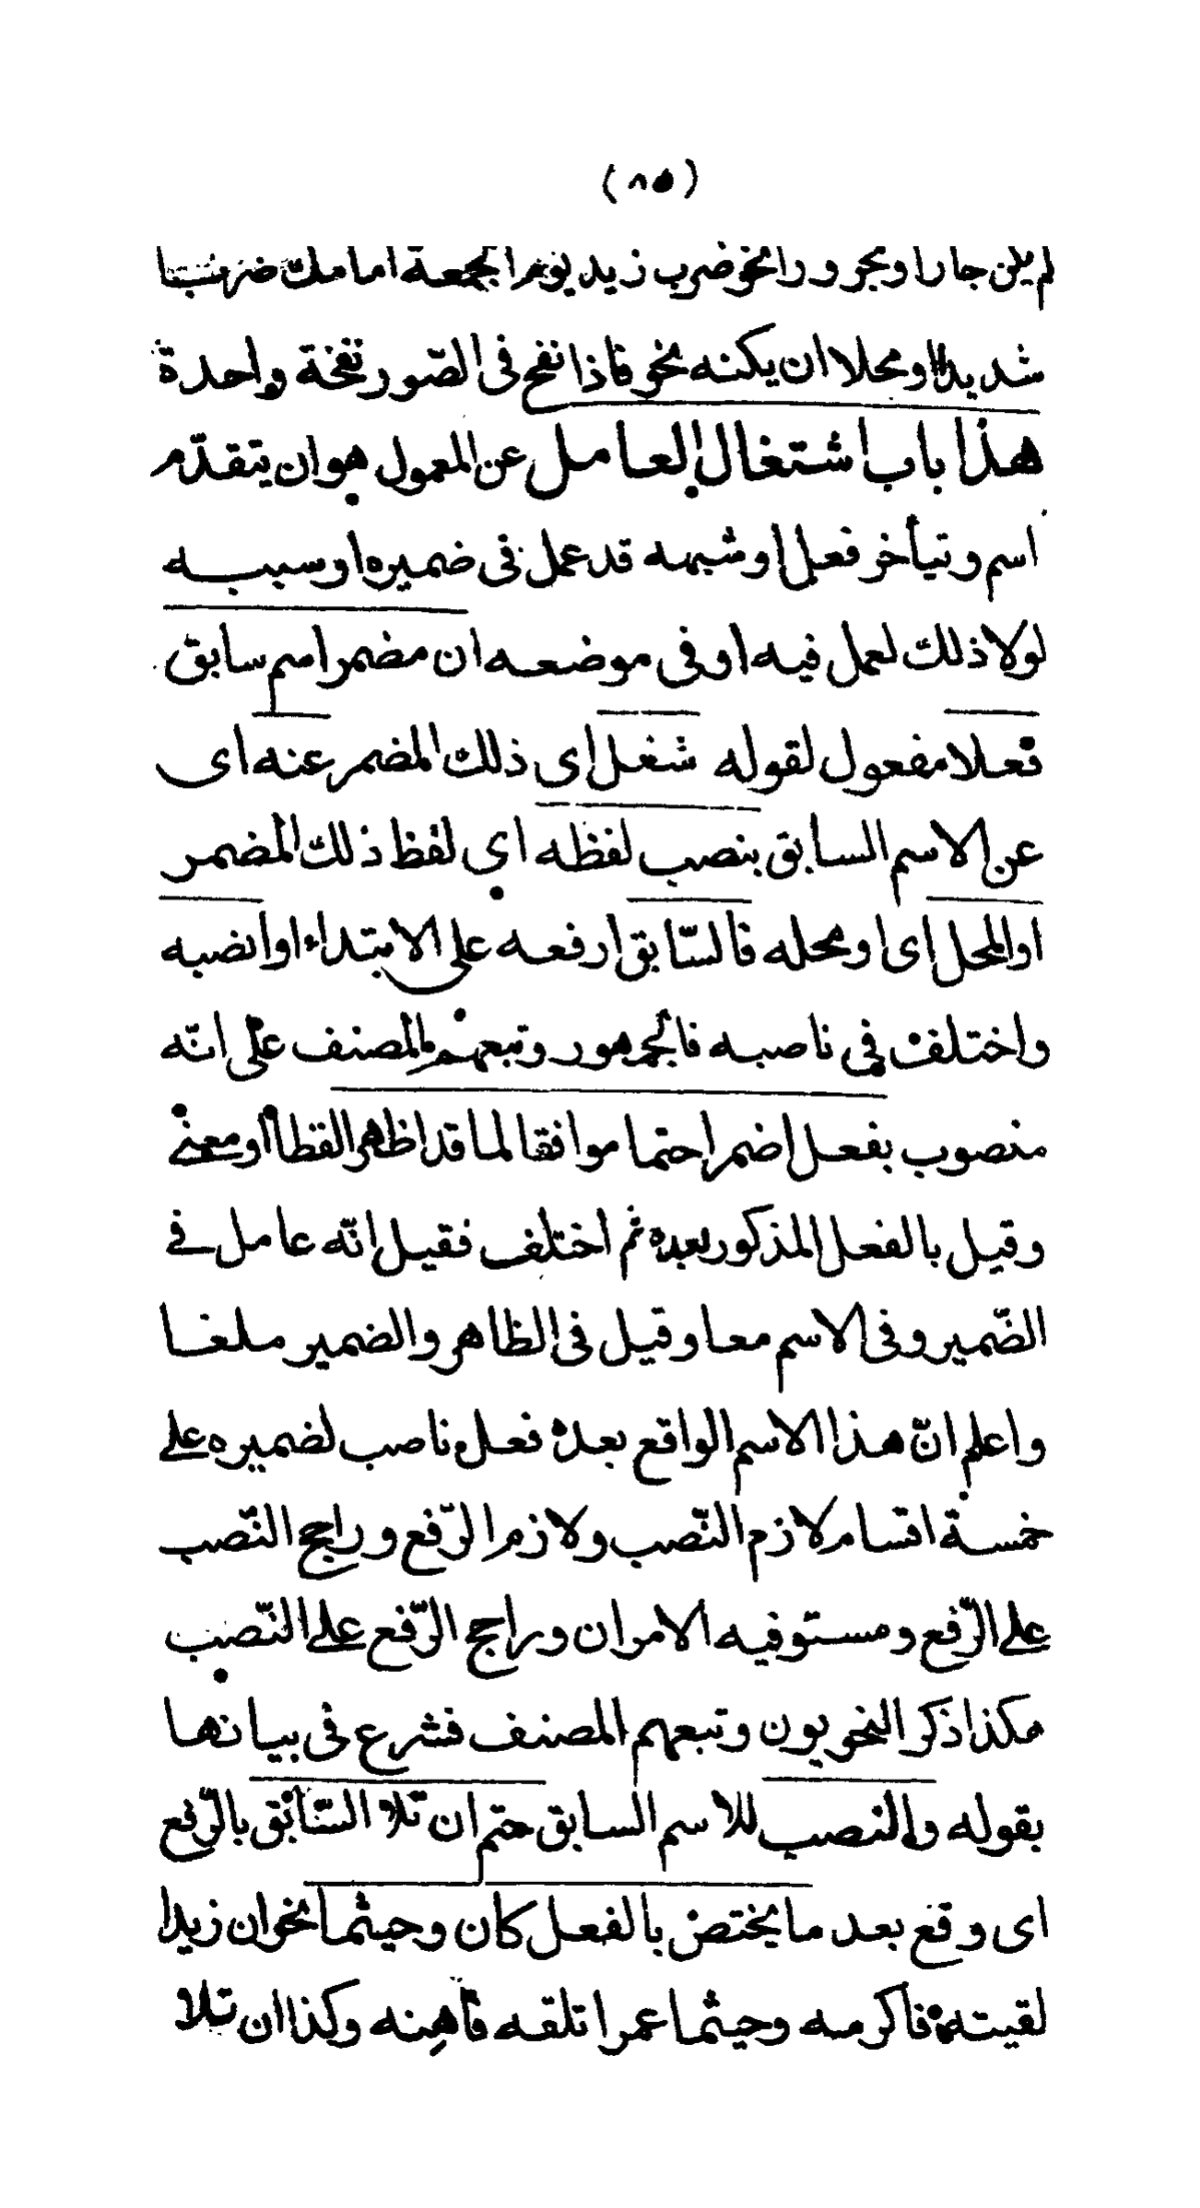 (٨٥)
لم يكن جارا ومجرورا نحو ضرب زيد يوم الجمعة امامك ضربا
شديدا او محلا ان يكنه نحو فاذا نفخ فى الصّور نفخة واحدة
هذا باب اشتغال العامل عن المعمول هو ان يتقدّم
اسم ويتأخر فعل او شبهه قد عمل فى ضميره او سببه
لولا ذلك لعمل فيه او فى موضعه ان مضمر اسم سابق
فعلا مفعول لقوله شغل اى ذلك المضمر عنه اى
عن الاسم السابق بنصب لفظه اى لفظ ذلك المضمر
او المحل اى او محله فالسّابق ارفعه على الابتداء او انصبه
واختلف فى ناصبه فالجمهور وتبعهم المصنف على انّه
منصوب بفعل اضمر احتما موافقا لما قد اظهر لفظا او معنى
وقيل بالفعل المذكور بعده ثم اختلف فقيل انّه عامل فى
الضّمير وفى الاسم معا وقيل فى الظاهر والضمير ملغا
واعلم انّ هذا الاسم الواقع بعده فعل ناصب لضميره على
خمسة اقسام لازم النّصب ولازم الرّفع وراجح النّصب
على الرّفع ومستو فيه الامران وراجح الرّفع على النّصب
هكذا ذكر النحويون وتبعهم المصنف فشرع فى بيانها
بقوله والنصب للاسم السابق حتم ان تلا السّابق بالرّفع
اى وقع بعد ما يختصّ بالفعل كان وحيثما نحو ان زيدا
لقيته فاكرمه وحيثما عمرا تلقه فاهنه وكذا ان تلا